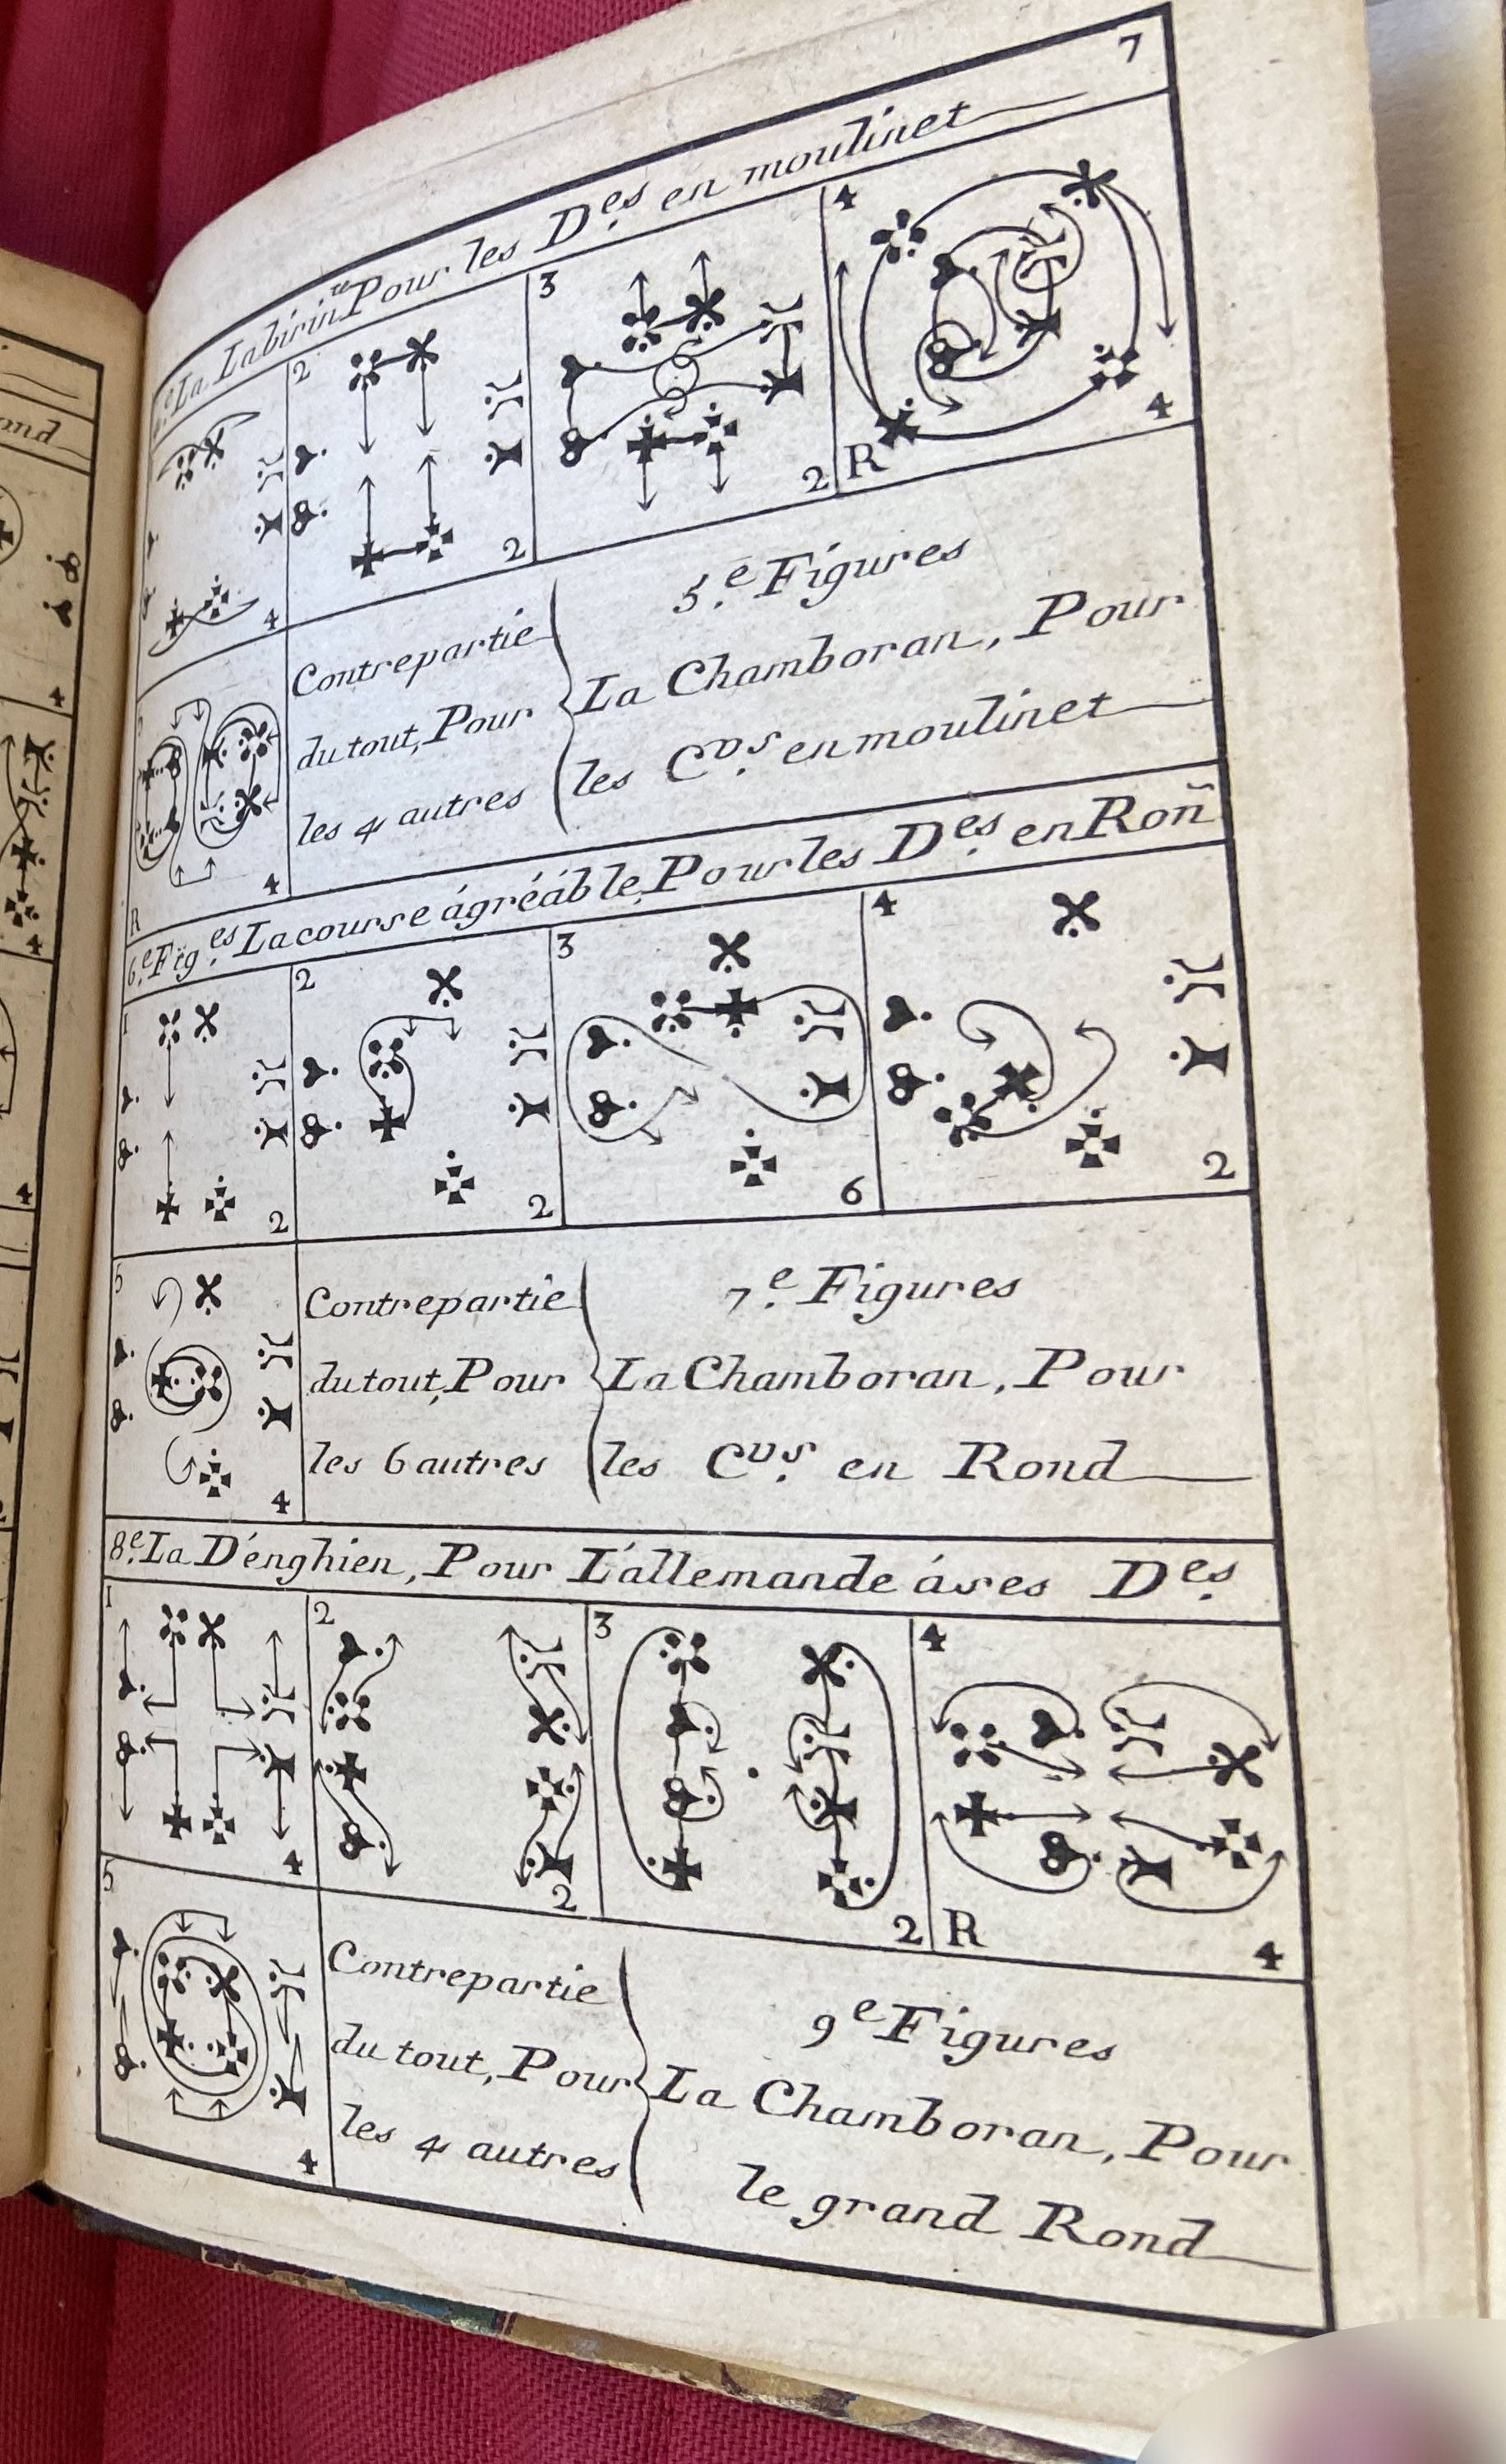 7
La Labirin.te Pour les D.es en moulinet
4
2
2
3
2
4
R
4
5
R
4
Contrepartie
du tout, Pour
les 4 autres
5.e Figures
La Chamboran, Pour
les C.vrs en moulinet
6.e Fig.es La course ágréáble, Pour les D.es en Roñ
1
2
2
2
3
6
4
2
5
4
Contrepartie
du tout, Pour
les 6 autres
7.e Figures
La Chamboran, Pour
les C.vrs en Rond
8.e La D'énghien, Pour L'állemande áses D.es
1
4
2
2
3
2
4
R
4
5
4
Contrepartie
du tout, Pour
les 4 autres
9.e Figures
La Chamboran, Pour
le grand Rond